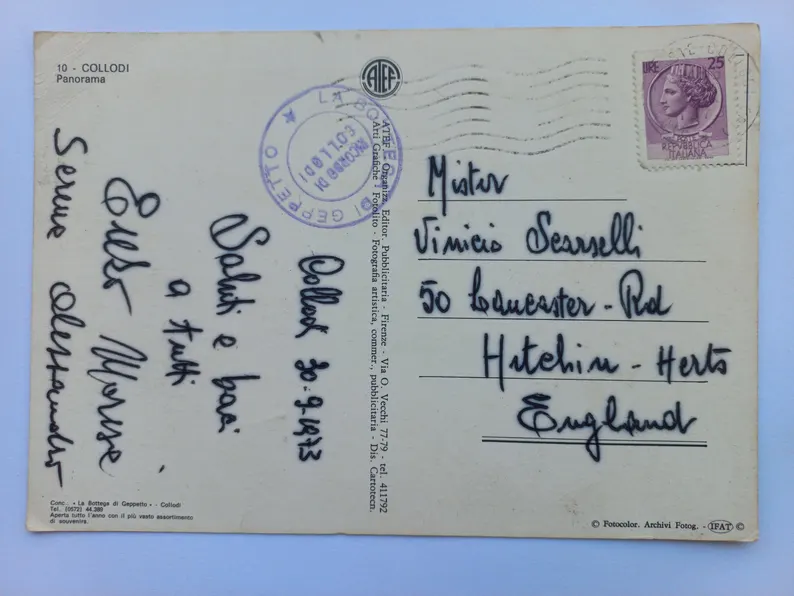 10 - COLLODI
Panorama
ATEF
LA BOTTEGA DI GEPPETTO
RICORDO DI
COLLODI
LIRE 25
REPUBBLICA
ITALIANA
Collodi 30-9-1973
Saluti e baci
a tutti
Enzo Morese
Serena Alessandro
ATEF - Organizz. Editor. Pubblicitaria - Firenze - Via O. Vecchi 77-79 - tel. 411792
Arti Grafiche - Fotolito - Fotografia artistica, commer., pubblicitaria - Dis. Cartotecn.
Mister
Vinicio Scarselli
50 Lancaster - Rd
Hitchin - Herts
England
Conc. « La Bottega di Geppetto » - Collodi
Tel. (0572) 44.389
Aperta tutto l'anno con il più vasto assortimento
di souvenirs.
© Fotocolor. Archivi Fotog. - IFAT ©